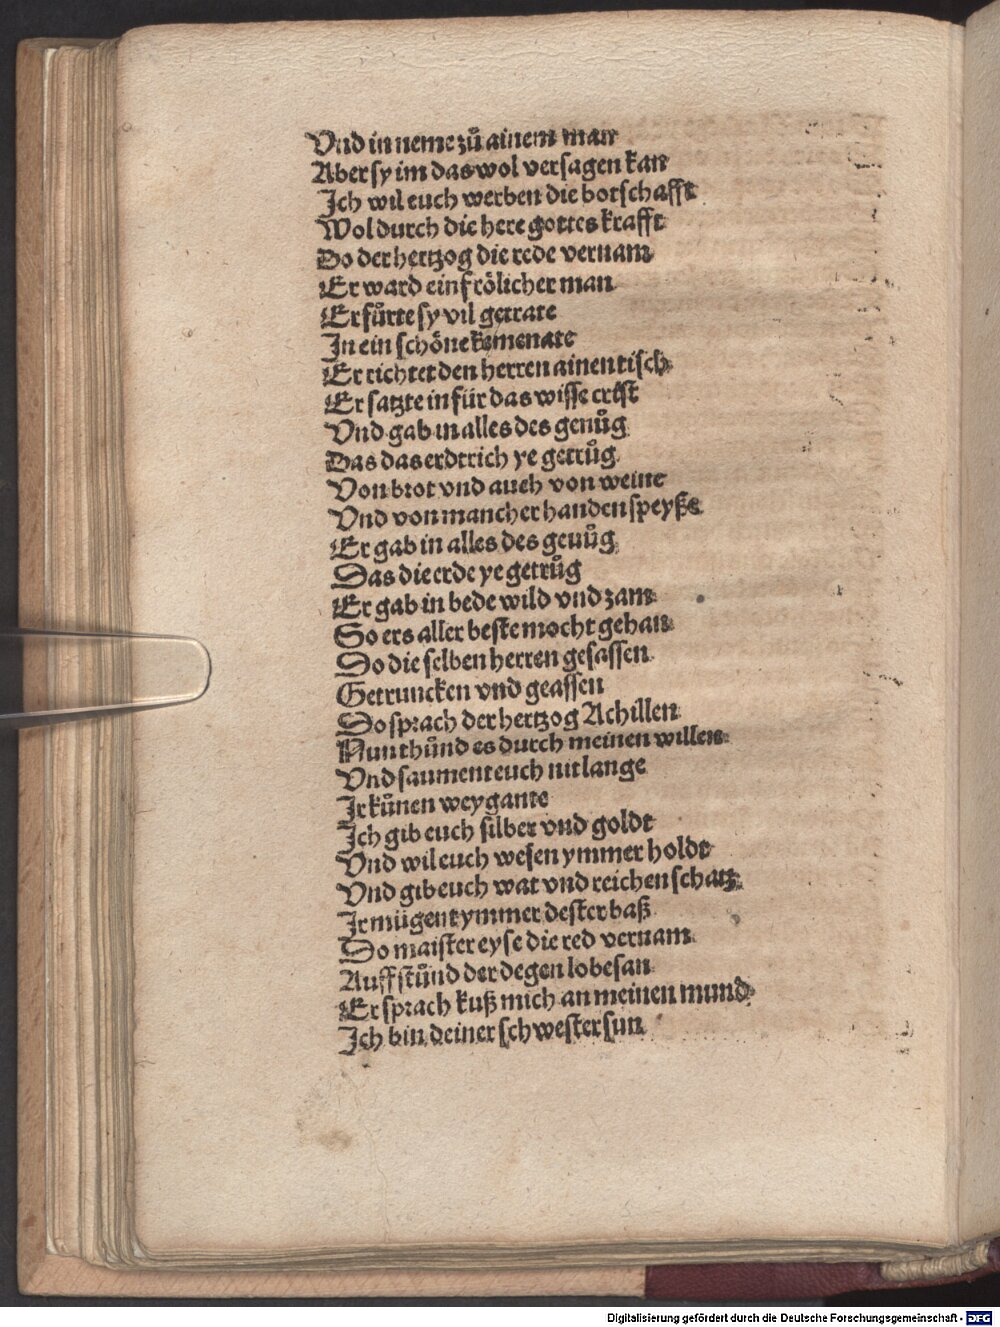 Vnd in neme zů ainem man
Aber sy im das wol versagen kan
Ich wil euch werben die botschafft
Wol durch die here gottes krafft
Do der hertzog die rede vernam
Er ward ein frölicher man
Er fůrte sy vil getrate
In ein schöne kemenate
Er richtet den herren ainen tisch
Er satzte in für das wisse crist
Vnd gab in alles des genůg
Das das erdtrich ye getrůg
Von brot vnd auch von weine
Vnd von mancher handen speyße
Er gab in alles des genůg
Das die erde ye getrůg
Er gab in bede wild vnd zam
So ers aller beste mocht gehan
Do die selben herren gesassen
Getruncken vnd geassen
Do sprach der hertzog Achillen
Nun thůnd es durch meinen willen
Vnd saument euch nit lange
Ir kůnen weygante
Ich gib euch silber vnd goldt
Vnd wil euch wesen ymmer holdt
Vnd gib euch wat vnd reichen schatz
Ir mügent ymmer dester baß
Do maister eyse die red vernam
Auff stůnd der degen lobesan
Er sprach kuß mich an meinen mund
Ich bin deiner schwester sun
Digitalisierung gefördert durch die Deutsche Forschungsgemeinschaft - DFG